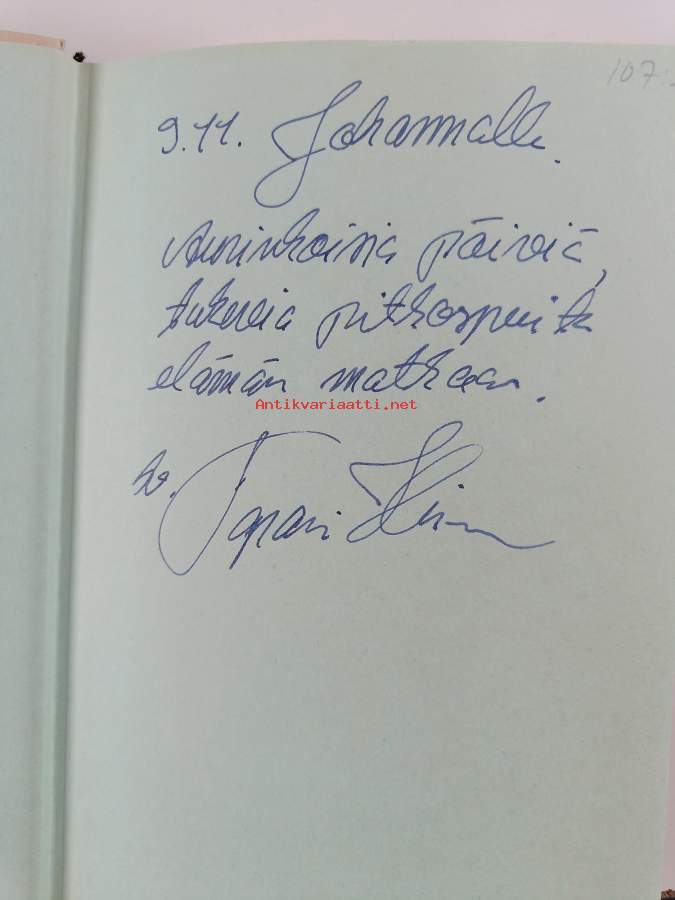 107:
9.11. Johannalle.
Aurinkoisia päiviä,
tukevia pitkospuita
elämän matkaan.
Antikvariaatti.net
Tapani